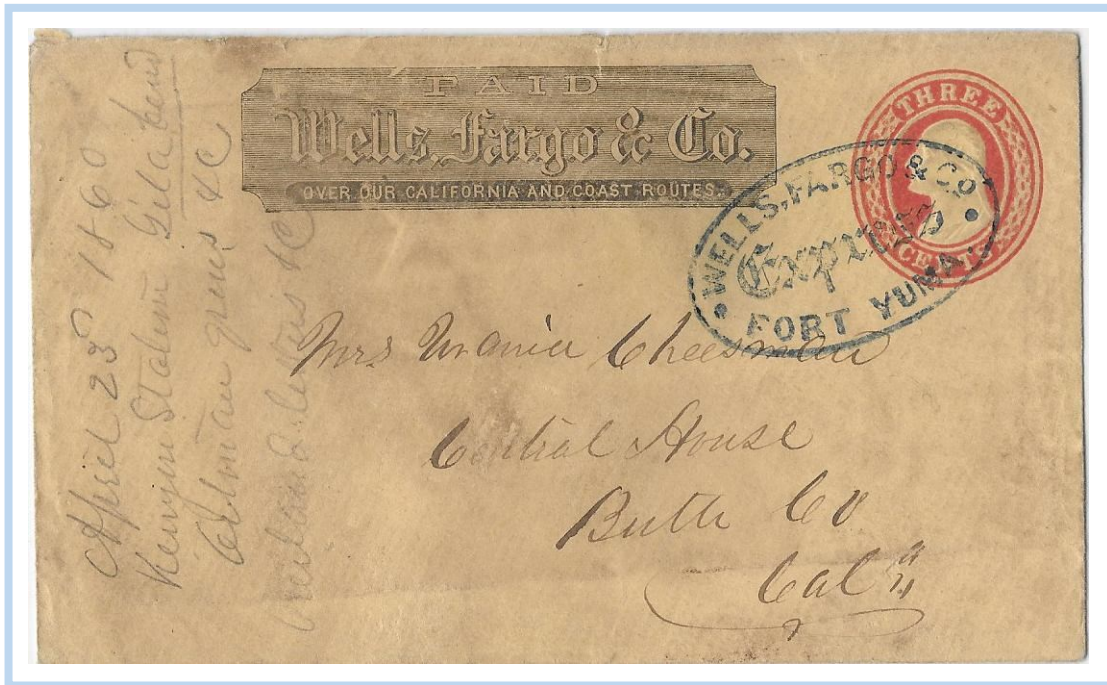 PAID
Wells, Fargo & Co.
OVER OUR CALIFORNIA AND COAST ROUTES.
THREE
CENTS
WELLS, FARGO & CO.
Express
FORT YUMA.
Mrs Cheesman
Central House
Butte Co
Cal
April 23 1860
Kenyon Station Gila bend
&C
&C